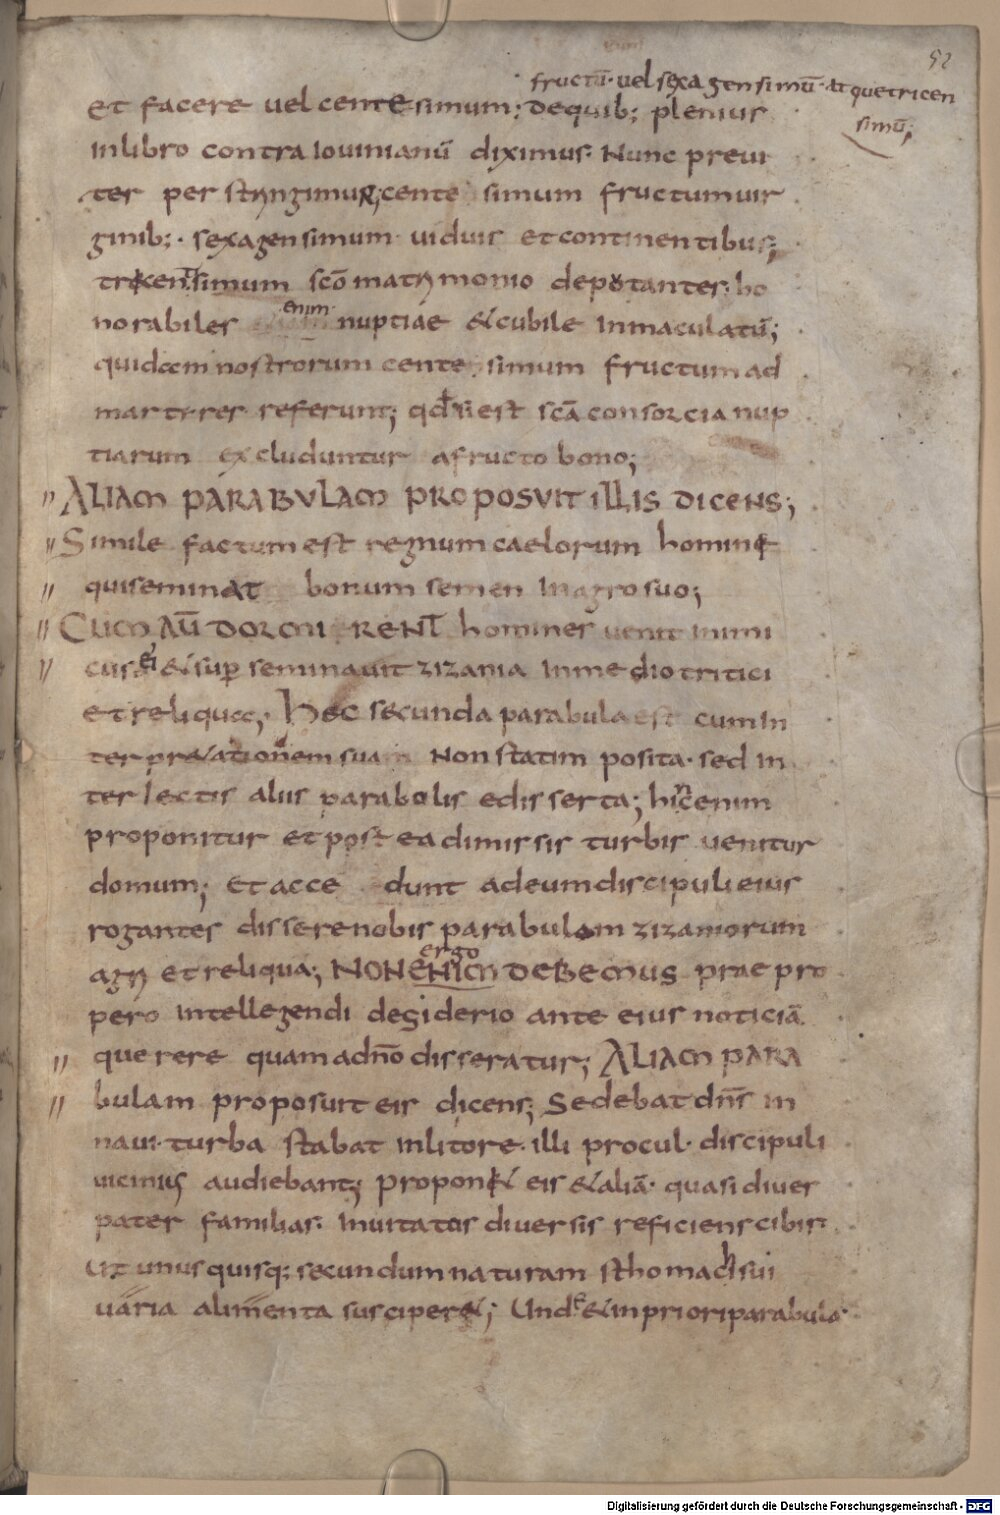 52
fructū· vel sexagensimū· atque tricen
simū;
et facere vel centesimum; dequib; plenius
inlibro contra iovinianū diximus· Nunc previ
ter per stringimus; centesimum fructum vir
ginib;· sexagensimum viduis et continentibus;
tricensimum scō matrimonio deputantes· ho
norabiles enim nuptiae & cubile inmaculatū;
quidam nostrorum centesimum fructum ad
martires referunt; qđ si est scā consorcia nup
tiarum excluduntur afructo bono;
ALIAM PARABULAM PROPOSUIT ILLIS DICENS;
Simile factum est regnum caelorum homini
qui seminat bonum semen in agro suo;
CUM AŪ DORMIRENT homines venit inimi
cus ei & sup seminavit zizania in medio tritici
et reliqua; Hec secunda parabula est cum in
terpretationem sua Non statim posita· sed in
ter lectis aliis parabolis edisserta; hic enim
proponitur et postea dimissis turbis venitur
domum; Et accedunt adeum discipuli eius
rogantes disserenobis parabulam zizaniorum
agri et reliqua; NON ENIM ergo DEBEMUS prae pro
pero intellegendi desiderio ante eius noticiā
querere quam adnō disseratur; ALIAM PARA
bulam proposuit eis dicens; Sedebat dns in
navi· turba stabat in litore· illi procul· discipuli
vicinius audiebant; Proponit eis & aliā· quasi diver
pater familias· invitatos diversis reficiens cibis·
Ut unusquisq; secundum naturam sthomachi sui
varia alimenta susciperet; Unde & in priori parabula·
Digitalisierung gefördert durch die Deutsche Forschungsgemeinschaft - DFG